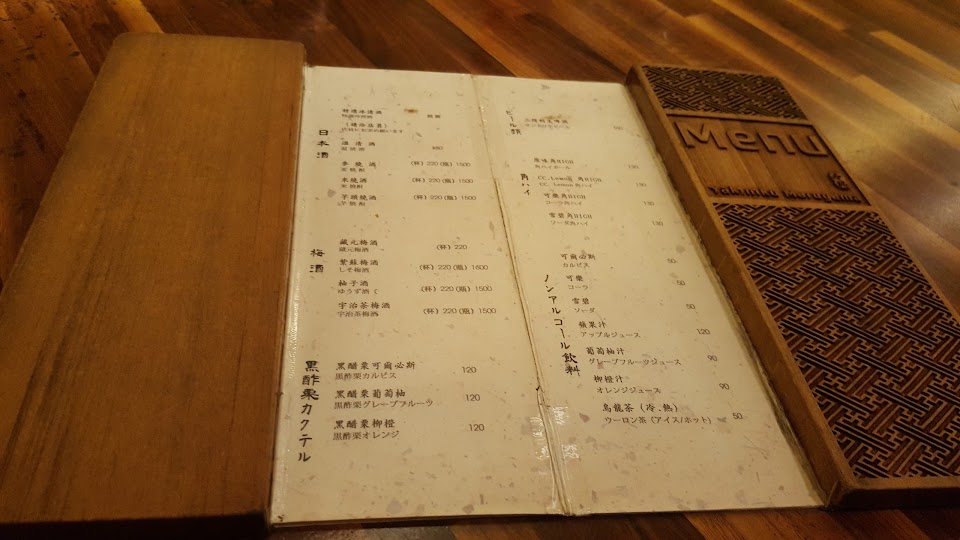 日本酒
(請洽店員)
清酒
麥燒酒 (杯) 220 (瓶) 1500
麦焼酎
米燒酒 (杯) 220 (瓶) 1500
米焼酎
芋頭燒酒 (杯) 220 (瓶) 1500
芋焼酎
梅酒
藏元梅酒 (杯) 220
蔵元梅酒
紫蘇梅酒 (杯) 220 (瓶) 1600
しそ梅酒
柚子酒 (杯) 220 (瓶) 1500
ゆうず酒
宇治茶梅酒 (杯) 220 (瓶) 1500
宇治茶梅酒
黒酢栗カクテル
黑醋栗可爾必斯 120
黒酢栗カルピス
黑醋栗葡萄柚 120
黒酢栗グレープフルーツ
黑醋栗柳橙 120
黒酢栗オレンジ
ビール類
角ハイ
原味角HIGH 130
角ハイボール
CC.Lemon 角HIGH 130
CC. Lemon角ハイ
可樂角HIGH 130
コーラ角ハイ
雪碧角HIGH 130
ソーダ角ハイ
ノンアルコール飲料
可爾必斯 50
カルピス
可樂 50
コーラ
雪碧 50
ソーダ
蘋果汁 120
アップルジュース
葡萄柚汁 90
グレープフルーツジュース
柳橙汁 90
オレンジジュース
烏龍茶 (冷.熱) 50
ウーロン茶 (アイス/ホット)
Menu